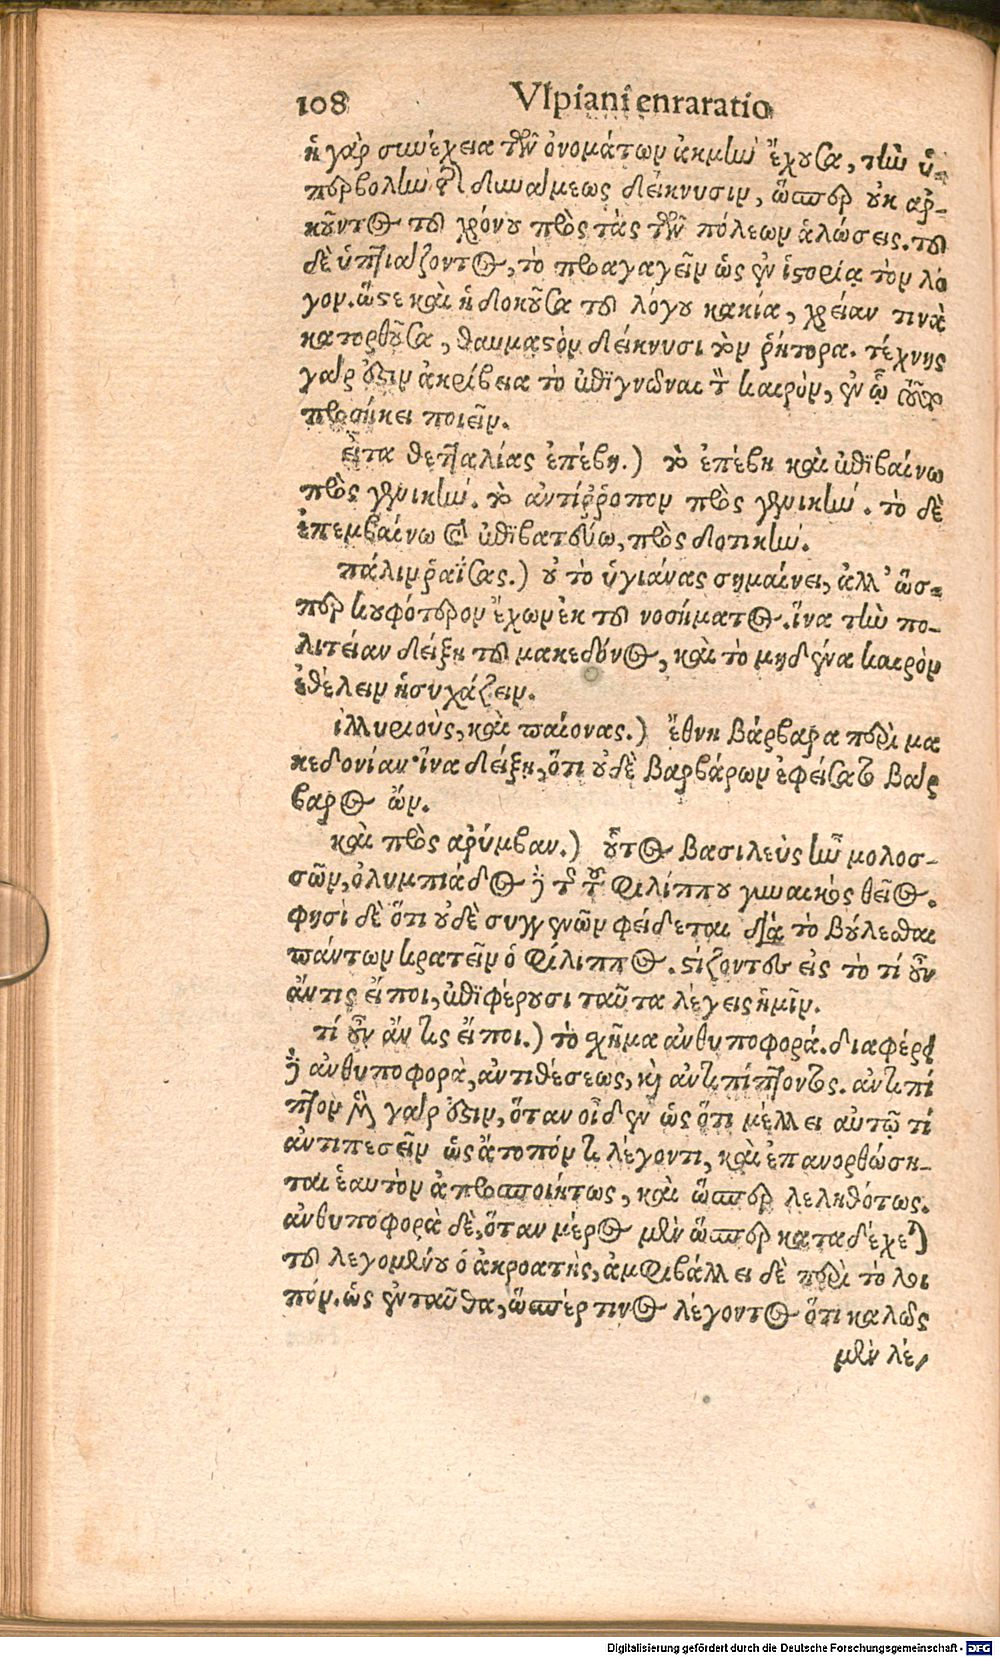 108 Vlpiani enraratio
ἡ γὰρ συνέχεια τῶν ὀνομάτων ἀκμὴν ἔχουσα, τὴν ὑ-
περβολὴν τῆς δυνάμεως δείκνυσιν, ὥσπερ οὐκ αρ-
κοῦντος τοῦ χρόνου πρὸς τὰς τῶν πόλεων ἁλώσεις. τοῦ
δὲ ὑπτιάζοντος, τὸ προαγαγεῖν ὡς ἐν ἱστορίᾳ τὸν λό
γον. ὥστε καὶ ἡ δοκοῦσα τοῦ λόγου κακία, χρείαν τινὰ
κατορθοῦσα, θαυμαστὸν δείκνυσι τὸν ῥήτορα. τέχνης
γάρ ἐστιν ἀκρίβεια τὸ ἐπιγνῶναι τὸν καιρὸν, ἐν ᾧ
προσήκει ποιεῖν.
εἶτα θετταλίας ἐπέβη.) τὸ ἐπέβη καὶ ἐπιβαίνω
πρὸς γενικήν. τὸ ἀντίῤῥοπον πρὸς γενικήν. τὸ δὲ
ἐπεμβαίνω καὶ ἐπιβατεύω, πρὸς δοτικήν.
πάλιν ῥαΐσας.) οὐ τὸ ὑγιάνας σημαίνει, ἀλλ' ὥσ-
περ κουφότερον ἔχων ἐκ τοῦ νοσήματος. ἵνα τὴν πο-
λιτείαν δείξῃ τοῦ μακεδόνος, καὶ τὸ μηδένα καιρὸν
ἐθέλειν ἡσυχάζειν.
ἰλλυριοὺς, καὶ παίονας.) ἔθνη βάρβαρα περὶ μα
κεδονίαν· ἵνα δείξῃ, ὅτι οὐδὲ βαρβάρων ἐφείσατο βάρ
βαρος ὤν.
καὶ πρὸς αρύμβαν.) οὗτος βασιλεὺς ἦν μολοσ-
σῶν, ὀλυμπιάδος τῆς τοῦ φιλίππου γυναικὸς θεῖος.
φησὶ δὲ ὅτι οὐδὲ συγγενῶν φείδεται διὰ τὸ βούλεσθαι
πάντων κρατεῖν ὁ φίλιππος. στίζοντες εἰς τὸ τί οὖν
ἄν τις εἴποι, ἐπιφέρουσι ταῦτα λέγεις ἡμῖν.
τί οὖν ἄν τις εἴποι.) τὸ σχῆμα ἀνθυποφορά. διαφέρει
ἡ ἀνθυποφορὰ, ἀντιθέσεως, καὶ ἀντιπίπτοντος. ἀντιπί
πτον μὲν γάρ ἐστιν, ὅταν οἶδεν ὡς ὅτι μέλλει αὐτῷ τί
ἀντιπεσεῖν ὡς ἄτοπόν τι λέγοντι, καὶ ἐπανορθώση-
ται ἑαυτὸν ἀπροσποιήτως, καὶ ὥσπερ λεληθότως.
ἀνθυποφορὰ δὲ, ὅταν μέρος μὲν ὥσπερ καταδέχεται
τοῦ λεγομένου ὁ ἀκροατὴς, ἀμφιβάλλει δὲ περὶ τὸ λοι
πόν. ὡς ἐνταῦθα, ὥσπέρ τινος λέγοντος ὅτι καλῶς
μὲν λέ-
Digitalisierung gefördert durch die Deutsche Forschungsgemeinschaft - DFG